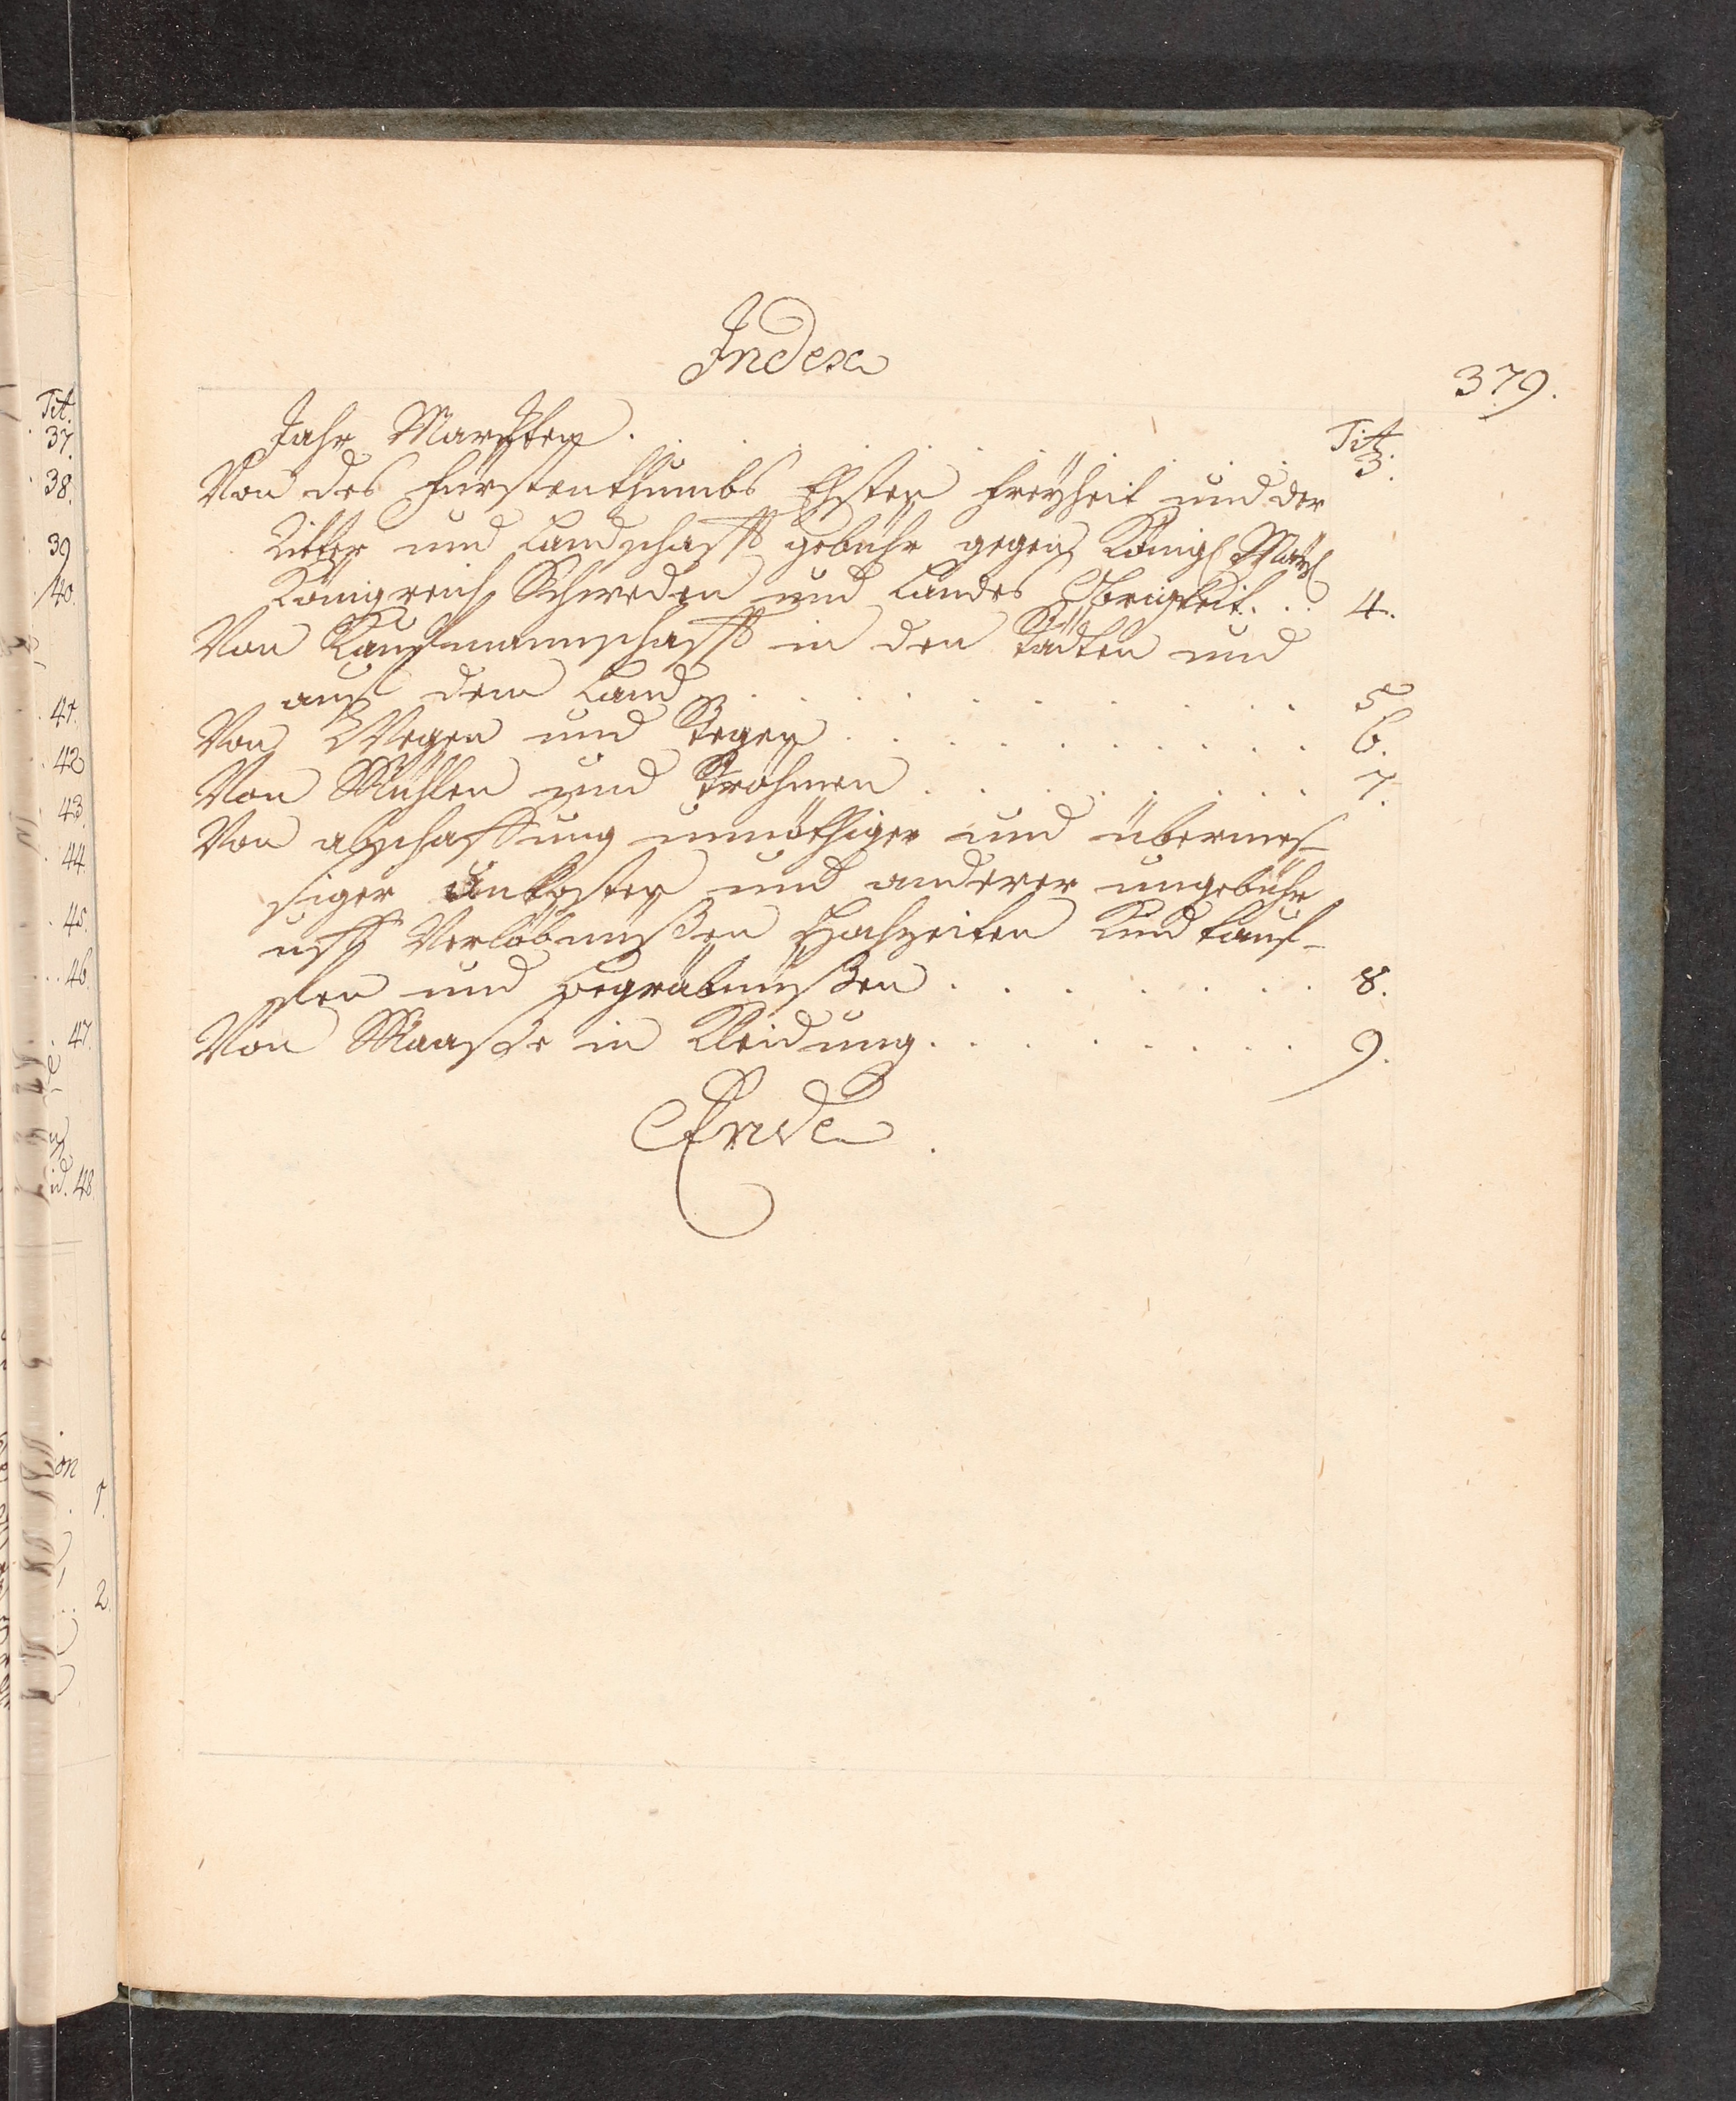 Index
379.
Tit.
Jahr Marckten. . . . . . . . 3.
Von des Fürstenthumbs Ehsten freyheit und der
Ritter und Landschafft gebühr gegen Königl Mayt
Königreich Schweden und Landes Obrigkeit. . . 4.
Von Kauffmannschafft in den Städten und
auf dem Land . . . . . . . . . . 5
Von Wegen und Stegen . . . . . . . . . . 6.
Von Mühlen und Ströhmen . . . . . . . . 7.
Von abschaffung unnöthiger und übermes-
siger Unkosten und anderer ungebühr
uff Verlöbnüßen Hochzeiten Kindtauf-
fen und Begräbnüßen . . . . . . . . 8.
Von Maaße in Kleidung. . . . . . . . 9.
Ende.
Tit.
37.
38.
39
40.
41.
42
43.
44.
45.
46.
47.
48.
1.
2.